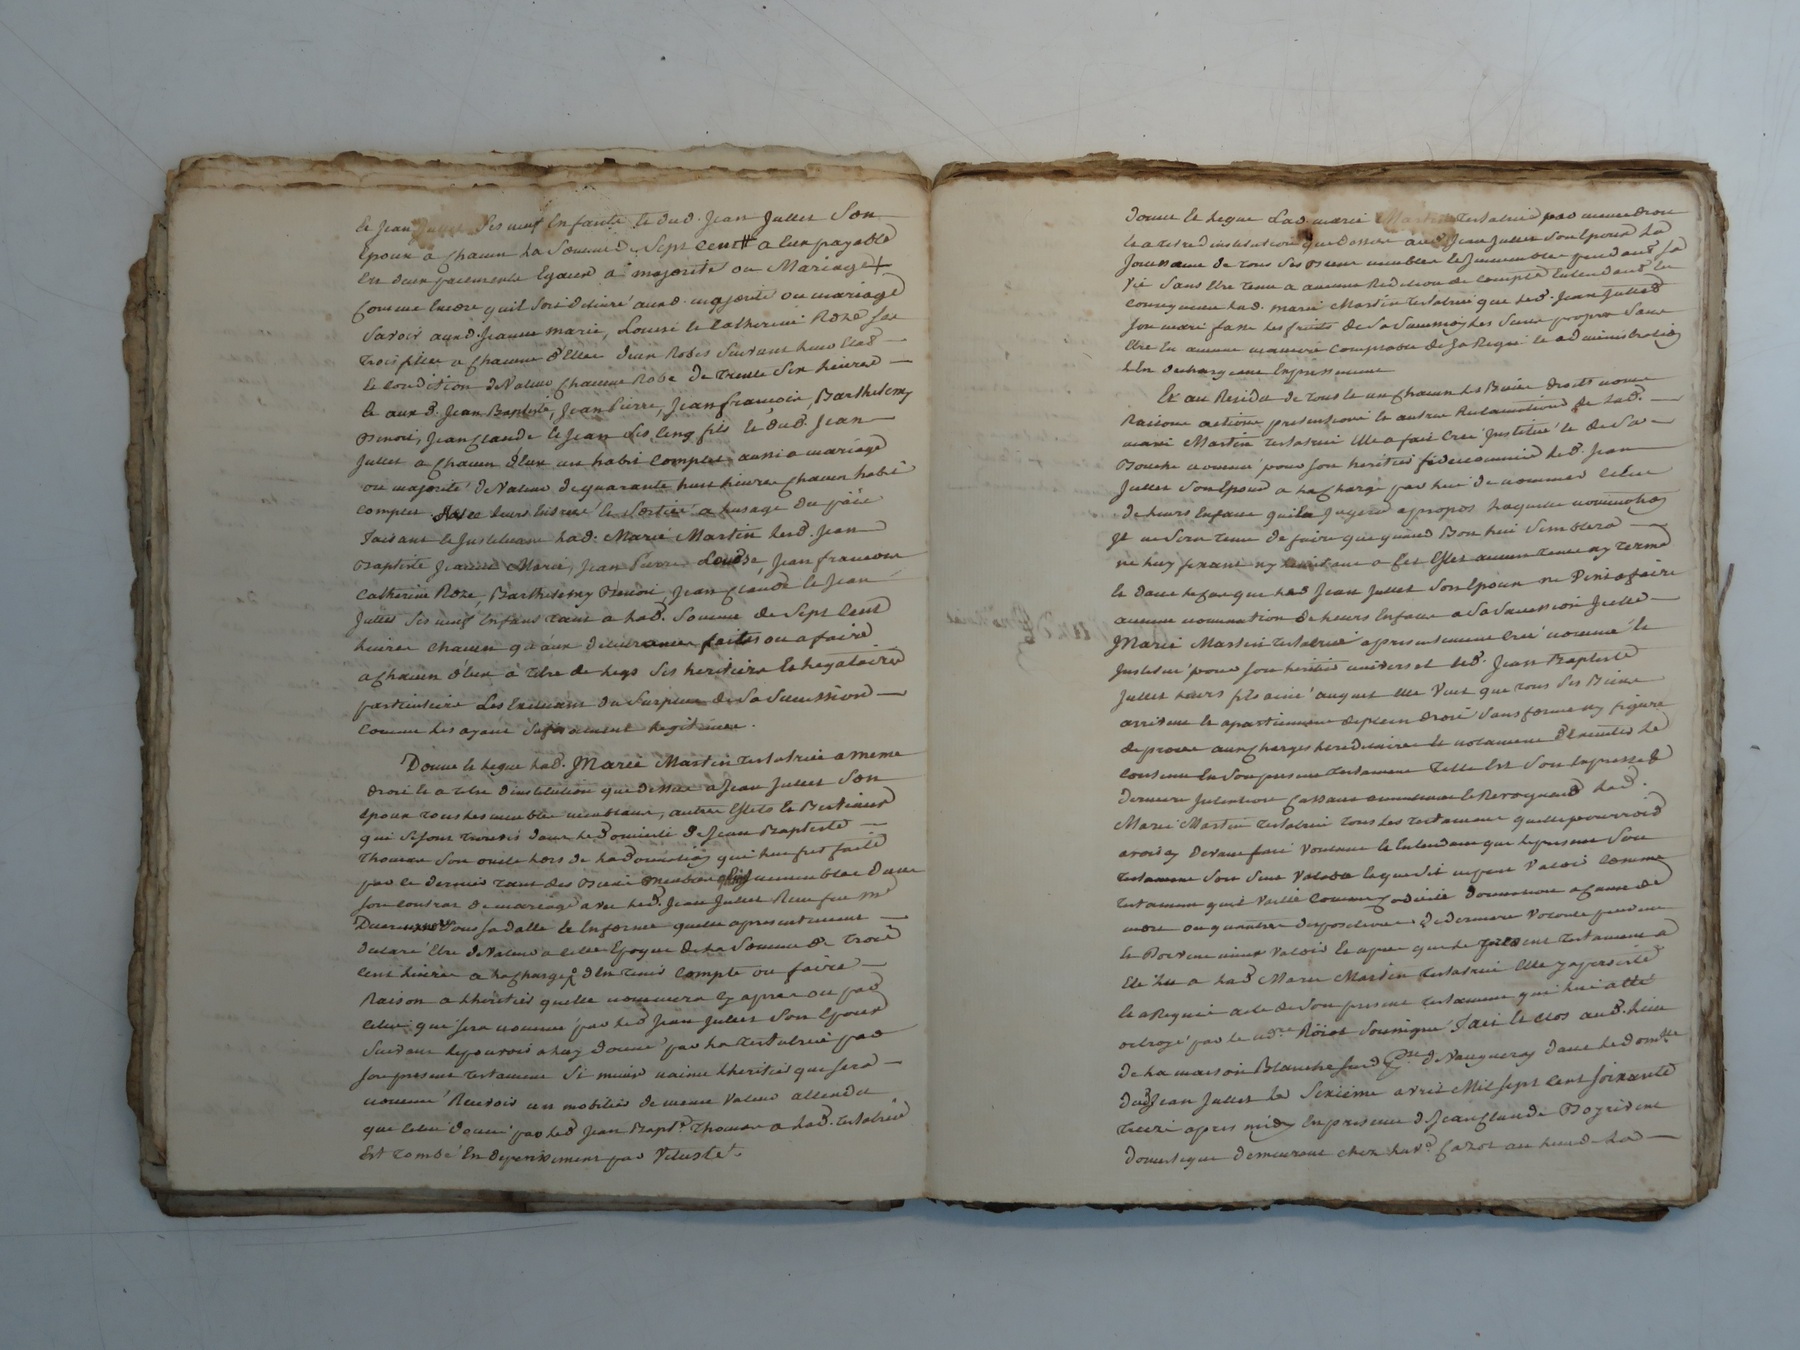 et Jean Jullet ses neuf Enfants et dud. Jean Jullet Son
Epoux a Chacun La Somme de Sept Cent ₶ a Eux payable
En deux payements Egaux a majorité ou Mariage +
Comme Encore quil soit delivré auxd. majorité ou mariage
Savoir auxd. Jeanne marie, Louise et Catherine Roze ses
trois filles a Chacune d'Elles deux Robes Suivant leur Etat
et Condition de Valeur Chaque Robe de trente Six livres
et auxd. Jean Baptiste, Jean Pierre, Jean françois, Barthelemy
Benoit, Jean Claude et Jean ses Cinq fils et dud. Jean
Jullet a Chacun d'Eux un habit Complet aussi a mariage
ou majorité de Valeur de quarante huit livres Chacun habit
Complet. leurs Entrée et Sortie a Lusage du païs
faisant et Instituant Lad. Marie Martin Lesd. Jean
Baptiste Jeanne Marie, Jean Pierre Louise, Jean francois
Catherine Roze, Barthelemy Benoit, Jean Claude et Jean
Jullet Ses neuf Enfans tant a Lad. Somme de Sept Cent
livres Chacun qu'aux delivrances faites ou a faire
a Chacun d'eux a titre de Legs Ses heritiers et Legataires
particuliers Les Excluant du Surplus de Sa Succession
Comme les ayant Suffisament Legitimés.
Donne et Legue Lad. Marie Martin testatrice a meme
droit et a titre d'institution que dessus a Jean Jullet Son
Epoux tous les meubles meublant, autres Effets et Bestiaux
qui Se sont trouvés dans Le Domicile de Jean Baptiste
Thomas Son oncle Lors de La Donation qui lui fut faite
par ce dernier tant des Biens meubles immeubles dans
son contrat de mariage avec Led. Jean Jullet Reçu feu Me
Ducreux Sous sa datte et Informé quelle a presentement
declaré Etre de Valeur a cette Epoque de La Somme de trois
Cent livres a la Charge d'En tenir Compte ou faire
Raison a Lheritier quelle nommera Cy apres ou par
Celui qui sera nommé par Led. Jean Jullet Son Epoux
Suivant le pouvoir a luy donné par La testatrice par
son present testament Si mieux naime Lheritier qui sera
nommé Recevoir un mobilier de meme Valeur attendu
que Celui donné par Led. Jean Bapte. Thomas a Lad. testatrice
Est tombé En deperissement par Vetusté.
Donne et Legue Lad. Marie Martin testatrice par meme droit
et a titre d'institution que Dessus aud. Jean Jullet Son Epoux La
Jouissance de tous Ses Biens meubles et Immeubles pendant Sa
Vie Sans Etre tenu a aucune Reddition de Compte Entendant En
Consequence Lad. marie Martin testatrice que Led. Jean Jullet
Son mari fasse Les fruits de Sa Jouissance Siens propres Sans
Etre En aucune maniere Comptable de Sa Regie et administration
L'En dechargeant Expressement
Et au Residu de tous et un Chacun Les Biens droits noms
Raisons actions pretentions et autres Reclamations de Lad.
marie Martin testatrice Elle a fait Creé Institué et de Sa
Bouche nommé pour Son heritier fideicommis Led. Jean
Jullet Son Epoux a La Charge par lui de nommer Celui
de leurs Enfans quil Jugera apropos Laquelle nomination
Il ne Sera tenu de faire que quand Bon lui Semblera
ne luy fixant ny limitant a Cet Effet aucun tems ny terme
et dans Le Cas que Led. Jean Jullet Son Epoux ne Vint a faire
aucune nomination de leurs Enfans a Sa Succession Icelle
Marie Martin testatrice a presentement Creé nommé et
Institué pour Son heritier universel Led. Jean Baptiste
Jullet leurs fils ainé auquel Elle Veut que tous Ses Biens
arrivent et apartiennent de plein droit Sans forme ny figure
de proces aux Charges hereditaires et notament d'Executer Le
Contenu En Son present testament Telle Est Son Expresse &
derniere Intention Cassant annullant et Revoquant Lad.
Marie Martin testatrice tous Les testamens quelle pourroit
avoir cy Devant faits Voulant et Entendant que le present Son
testament Soit Seul Valable et que S'il ne peut Valoir Comme
testament qu'il Vaille Comme Codicile Donnation a Cause de
mort ou par autre disposition de derniere Volonté pouvant
et Devant mieux Valoir Et apres que Le present testament a
Eté lu a Lad. Marie Martin testatrice Elle y a persisté
et a Requis acte de Son present testament qui lui a Eté
octroyé par le Nre. Roïal Soussigné fait et Clos aud. lieu
de La maison Blanche Sud. de Vaugneray dans Le domlle
dud. Jean Jullet Le Sixième avril Mil Sept Cent Soixante
treize apres midy En presence de Jean Claude Boyrivent
domestique demeurant chez Lave. Cazot au lieu de La